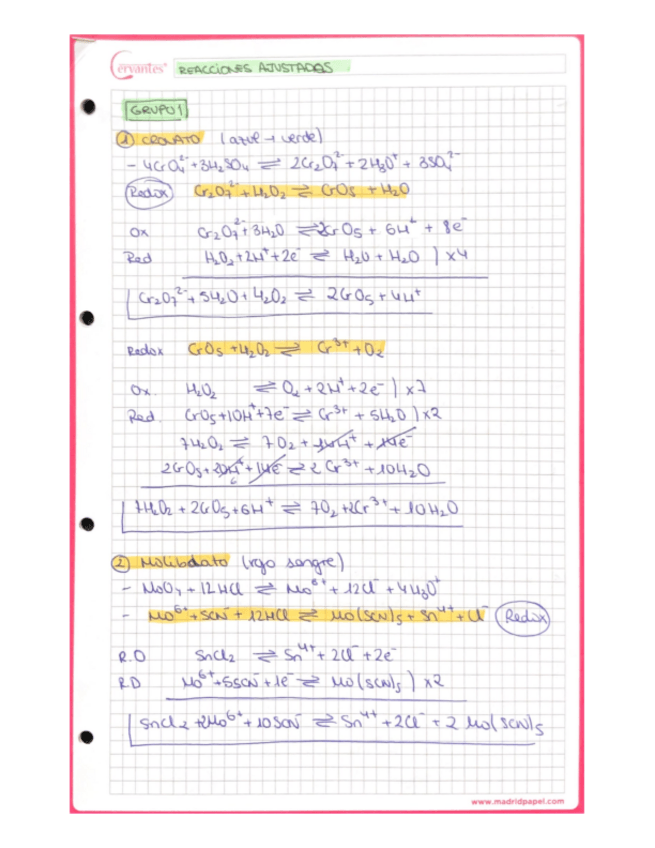 Cervantes REACCIONES AJUSTADAS
GRUPO 1
① CROMATO (azul → verde)
- 4CrO₄²⁻ + 3H₂SO₄ ⇌ 2Cr₂O₇²⁻ + 2H₃O⁺ + 3SO₄²⁻
Redox Cr₂O₇²⁻ + H₂O₂ ⇌ CrO₅ + H₂O
Ox Cr₂O₇²⁻ + 3H₂O ⇌ 2CrO₅ + 6H⁺ + 8e⁻
Red H₂O₂ + 2H⁺ + 2e⁻ ⇌ H₂O + H₂O | x4
Cr₂O₇²⁻ + 5H₂O + 4H₂O₂ ⇌ 2CrO₅ + 4H⁺
Redox CrO₅ + H₂O₂ ⇌ Cr³⁺ + O₂
Ox. H₂O₂ ⇌ O₂ + 2H⁺ + 2e⁻ | x7
Red. CrO₅ + 10H⁺ + 7e⁻ ⇌ Cr³⁺ + 5H₂O | x2
7H₂O₂ ⇌ 7O₂ + 14H⁺ + 14e⁻
2CrO₅ + 20H⁺ + 14e⁻ ⇌ 2Cr³⁺ + 10H₂O
7H₂O₂ + 2CrO₅ + 6H⁺ ⇌ 7O₂ + 2Cr³⁺ + 10H₂O
② Molibdato (rojo sangre)
- MoO₄ + 12HCl ⇌ Mo⁶⁺ + 12Cl⁻ + 4H₃O⁺
- Mo⁶⁺ + SCN⁻ + 12HCl ⇌ Mo(SCN)₅ + Sn⁴⁺ + Cl⁻ Redox
R.O SnCl₂ ⇌ Sn⁴⁺ + 2Cl⁻ + 2e⁻
R.D Mo⁶⁺ + 5SCN⁻ + 1e⁻ ⇌ Mo(SCN)₅ ) x2
SnCl₂ + 2Mo⁶⁺ + 10SCN⁻ ⇌ Sn⁴⁺ + 2Cl⁻ + 2 Mo(SCN)₅
www.madridpapel.com